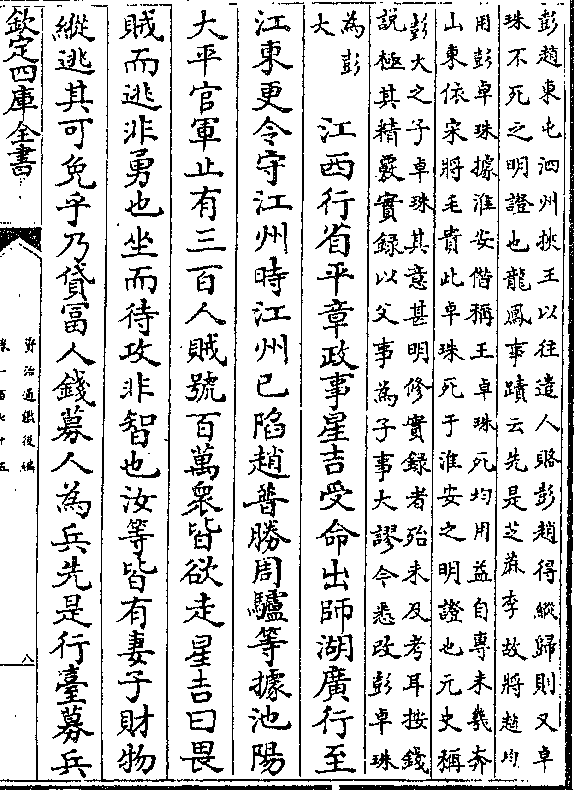 彭趙東屯泗州挾王以往遣人賂彭趙得縱歸則又卓
珠不死之明證也龍鳳事蹟云先是芝蔴李故將趙均
用彭卓珠據淮安僭稱王卓珠死均用益自專未幾奔
山東依宋將毛貴此卓珠死于淮安之明證也元史稱
彭大之子卓珠其意甚明修實録者殆未及考耳按錢
説極其精覈實録以父事為子事大謬今悉改彭卓珠
為彭
大
江西行省平章政事星吉受命出師湖廣行至
江東更令守江州時江州已陷趙普勝周驢等據池陽
大平官軍止有三百人賊號百萬衆皆欲走星吉曰畏
賊而逃非勇也坐而待攻非智也汝等皆有妻子財物
縱逃其可免乎乃貸冨人錢募人為兵先是行臺募兵
欽定四庫全書
資治通鑑後編
卷一百七十五
八